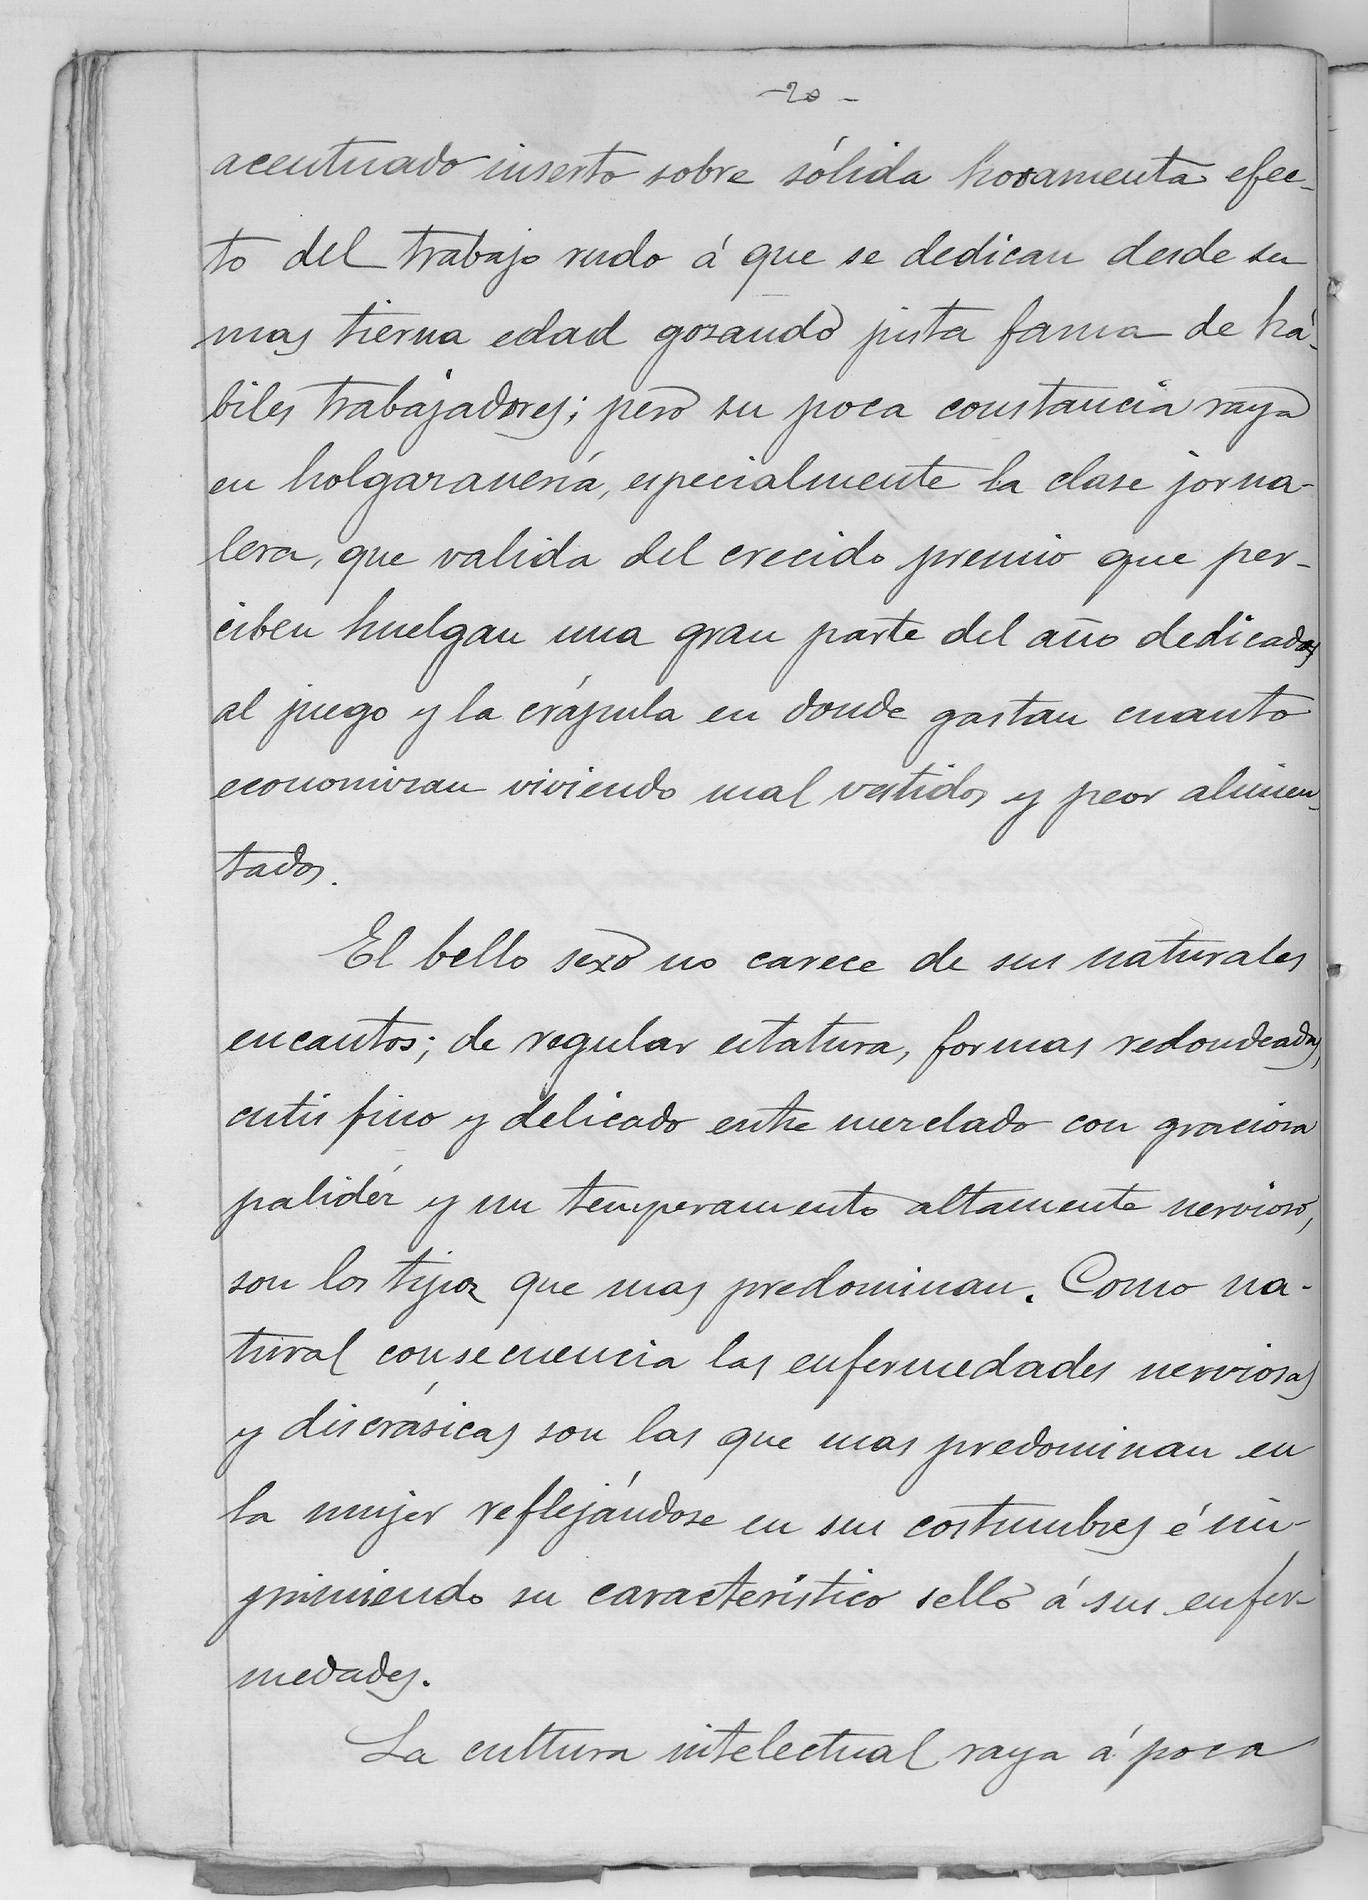 -20-
acentuado inserto sobre sólida horamenta efec-
to del trabajo rudo á que se dedican desde su
mas tierna edad gozando justa fama de há-
biles trabajadores; pero su poca constancia raya
en holgazanería, especialmente la clase jorna-
lera, que valida del crecido premio que per-
ciben huelgan una gran parte del año dedicados
al juego y la crápula en donde gastan cuanto
economizan viviendo mal vestidos y peor alimen-
tados.
El bello sexo no carece de sus naturales
encantos; de regular estatura, formas redondeadas,
cutis fino y delicado entre mezclado con graciosa
palidéz y un temperamento altamente nervioso,
son los tipos que mas predominan. Como na-
tural consecuencia las enfermedades nerviosas
y discrásicas son las que mas predominan en
la mujer reflejándose en sus costumbres é im-
primiendo su característico sello á sus enfer-
medades.
La cultura intelectual raya á poca